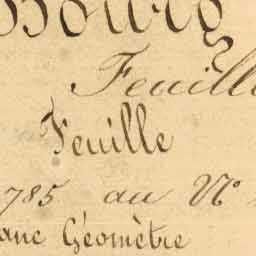 Bourg
Feuille
Feuille
785 au N°
Géomètre